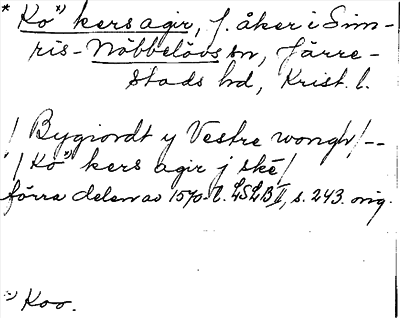 * Ko¹⁾ kers agir, f. åker i Sim-
ris-Nöbbelövs sn, Järre-
stads hd, Krist. l.
/ Bygiordt y Vestre wongh/--
/ Ko¹⁾ kers agir j ské/
förra delen av 1570-t. LSLB II, s. 243. orig.
¹⁾ Koo.